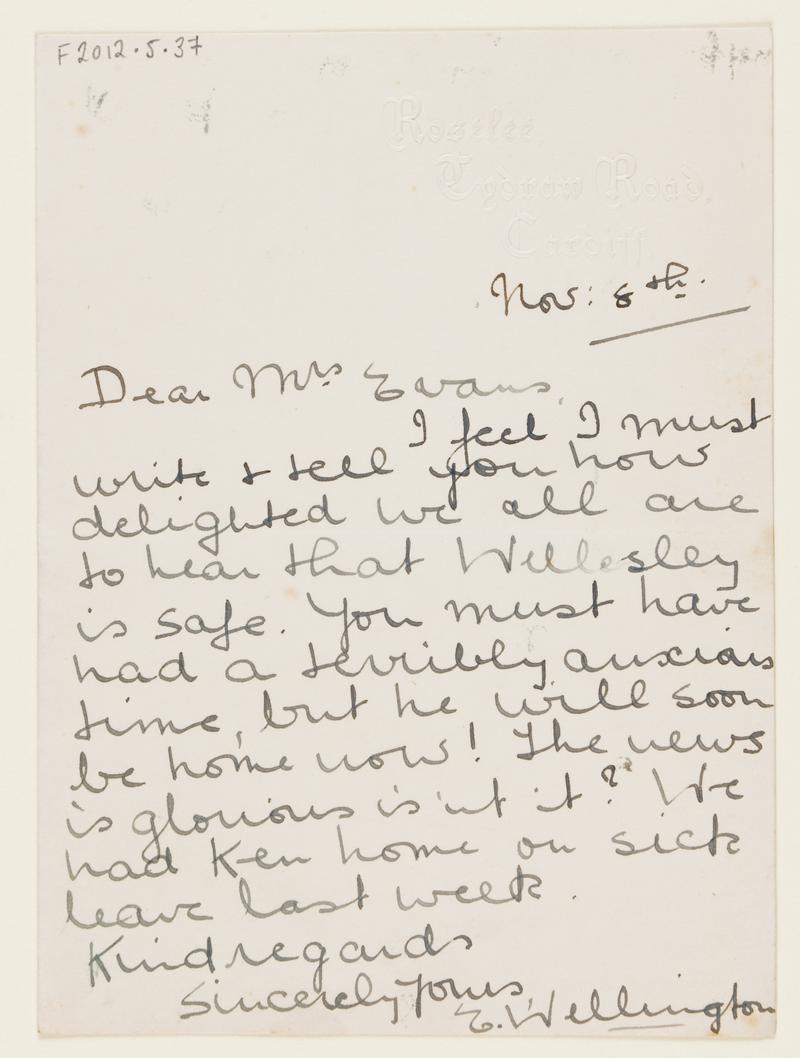 F2012.5.37
Roselee,
Tydraw Road,
Cardiff.
Nov: 8th.
Dear Mrs Evans,
I feel I must
write & tell you how
delighted we all are
to hear that Wellesley
is safe. You must have
had a terribly anxious
time, but he will soon
be home now! The news
is glorious is'nt it? We
had Ken home on sick
leave last week.
Kind regards
Sincerely Yours,
E. Wellington